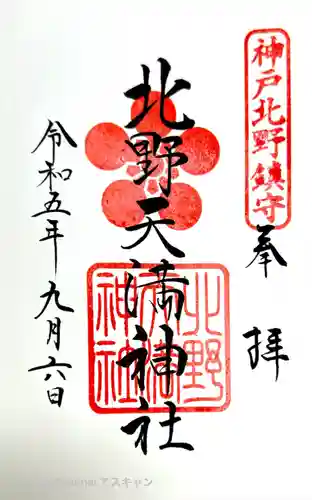 神戸北野鎮守
奉拝
北野天満神社
北野
天満
神社
令和五年九月六日